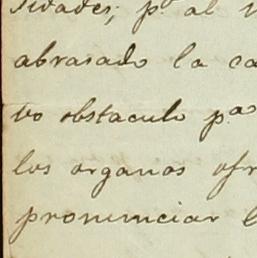 sidades; p.o al
abrasado la ca
vo obstaculo p.a
los organos ofr
pronunciar l